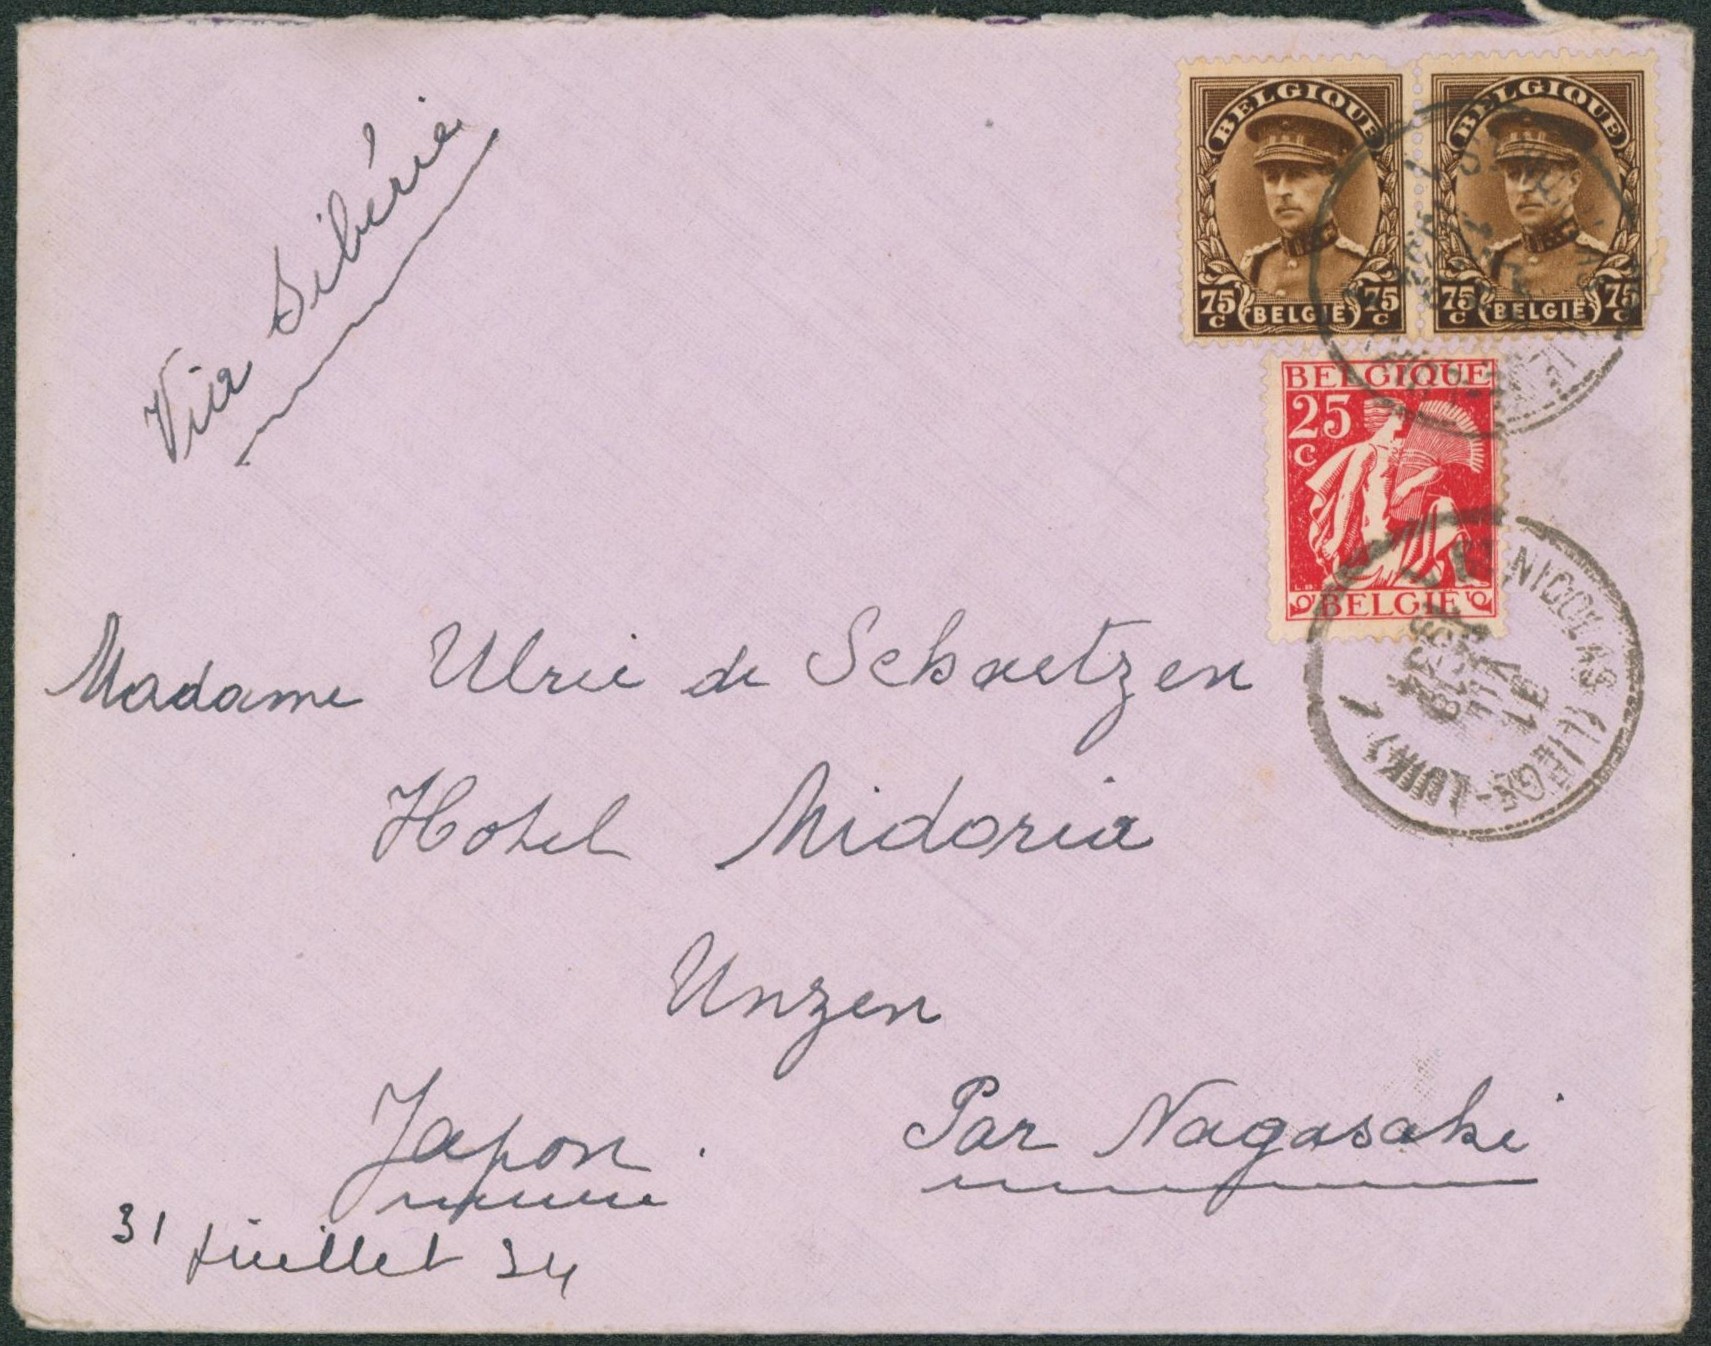 Via Sibérie
BELGIQUE
75 c
BELGIË
75 c
BELGIQUE
75 c
BELGIË
75 c
BELGIQUE
25
c
BELGIË
NICOLAS (LIEGE-LUIK)
1
Madame Ulric de Schaetzen
Hotel Midoria
Unzen
Japon. Par Nagasaki
31 Juillet 34